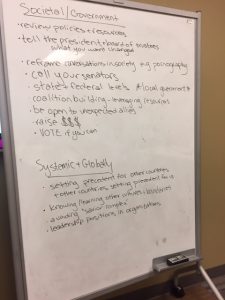 Societal/Government
• review policies + resources
• tell the president + board of trustees
what you want changed
• reframe conversations in society e.g. pornography
• call your senators
• state + federal levels #local government
• coalition building - leveraging resources
• be open to unexpected allies
• raise $$$
• VOTE if you can
Systemic + Globally
• setting precedent for other countries
+ other countries setting precedent for us
• knowing/learning other cultures
• avoiding "savior complex"
• leadership positions in organizations